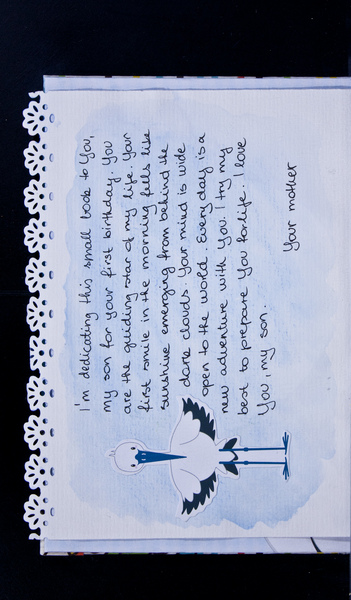 I'm dedicating this small book to You,
my son for your first birthday. You
are the guiding star of my life. Your
first smile in the morning fells like
sunshine emerging from behind the
dark clouds. Your mind is wide
open to the world. Every day is a
new adventure with You. I try my
best to prepare You for life. I love
You, my son.
Your mother